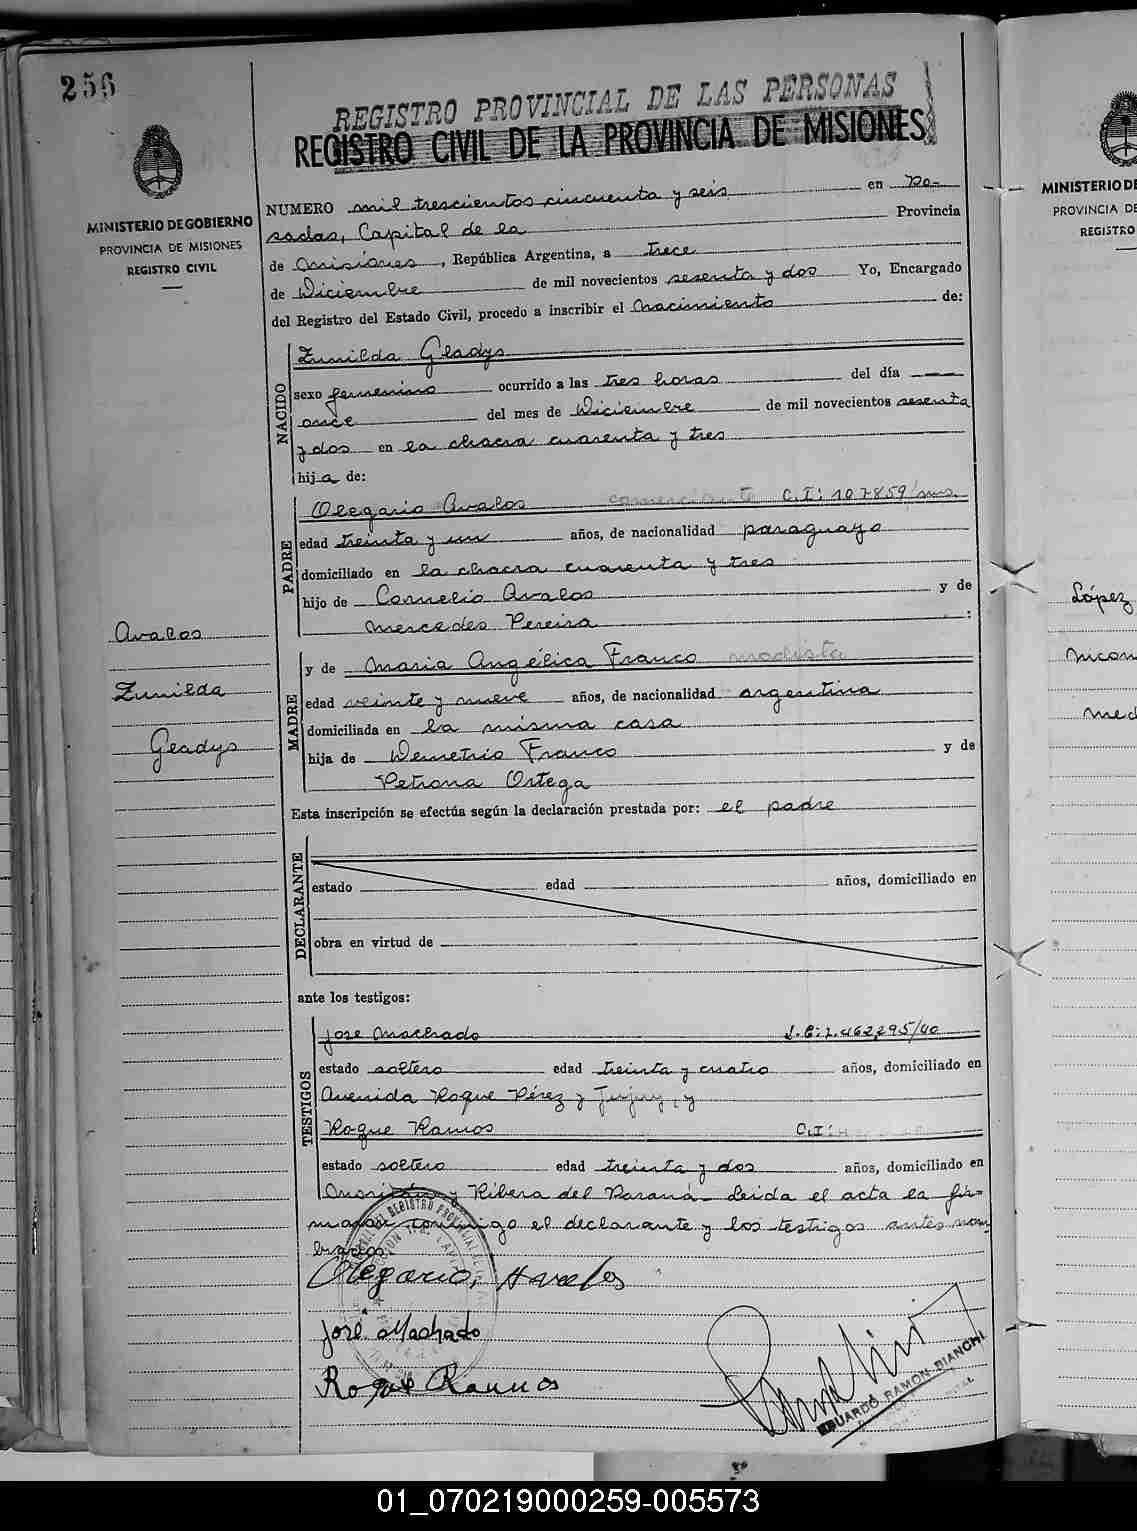 256
REGISTRO PROVINCIAL DE LAS PERSONAS
REGISTRO CIVIL DE LA PROVINCIA DE MISIONES
MINISTERIO DE GOBIERNO
PROVINCIA DE MISIONES
REGISTRO CIVIL
NUMERO mil trescientos cincuenta y seis en Po-
sadas, Capital de la Provincia
de Misiones, República Argentina, a trece
de Diciembre de mil novecientos sesenta y dos Yo, Encargado
del Registro del Estado Civil, procedo a inscribir el nacimiento de:
NACIDO
Zunilda Gladys
sexo femenino ocurrido a las tres horas del día
once del mes de Diciembre de mil novecientos sesenta
y dos en la chacra cuarenta y tres
hija de:
PADRE
Olegario Avalos comerciante C.I: 107859/mns.
edad treinta y un años, de nacionalidad paraguayo
domiciliado en la chacra cuarenta y tres
hijo de Cornelio Avalos y de
Mercedes Pereira :
Avalos
Zunilda
Gladys
MADRE
y de Maria Angélica Franco modista
edad veinte y nueve años, de nacionalidad argentina
domiciliada en la misma casa
hija de Demetrio Franco y de
Petrona Ortega
Esta inscripción se efectúa según la declaración prestada por: el padre
DECLARANTE
estado edad años, domiciliado en
obra en virtud de
ante los testigos:
TESTIGOS
José Machado
estado soltero edad treinta y cuatro años, domiciliado en
Avenida Roque Pérez y Jujuy, y
Roque Ramos C.I:
estado soltero edad treinta y dos años, domiciliado en
y Ribera del Paraná- Leida el acta la fir-
maron conmigo el declarante y los testigos antes nom-
brados
Olegario, Avalos
José Machado
Roque Ramos
EDUARDO RAMON BIANCHI
MINISTERIO DE
PROVINCIA DE
REGISTRO
López
01_070219000259-005573